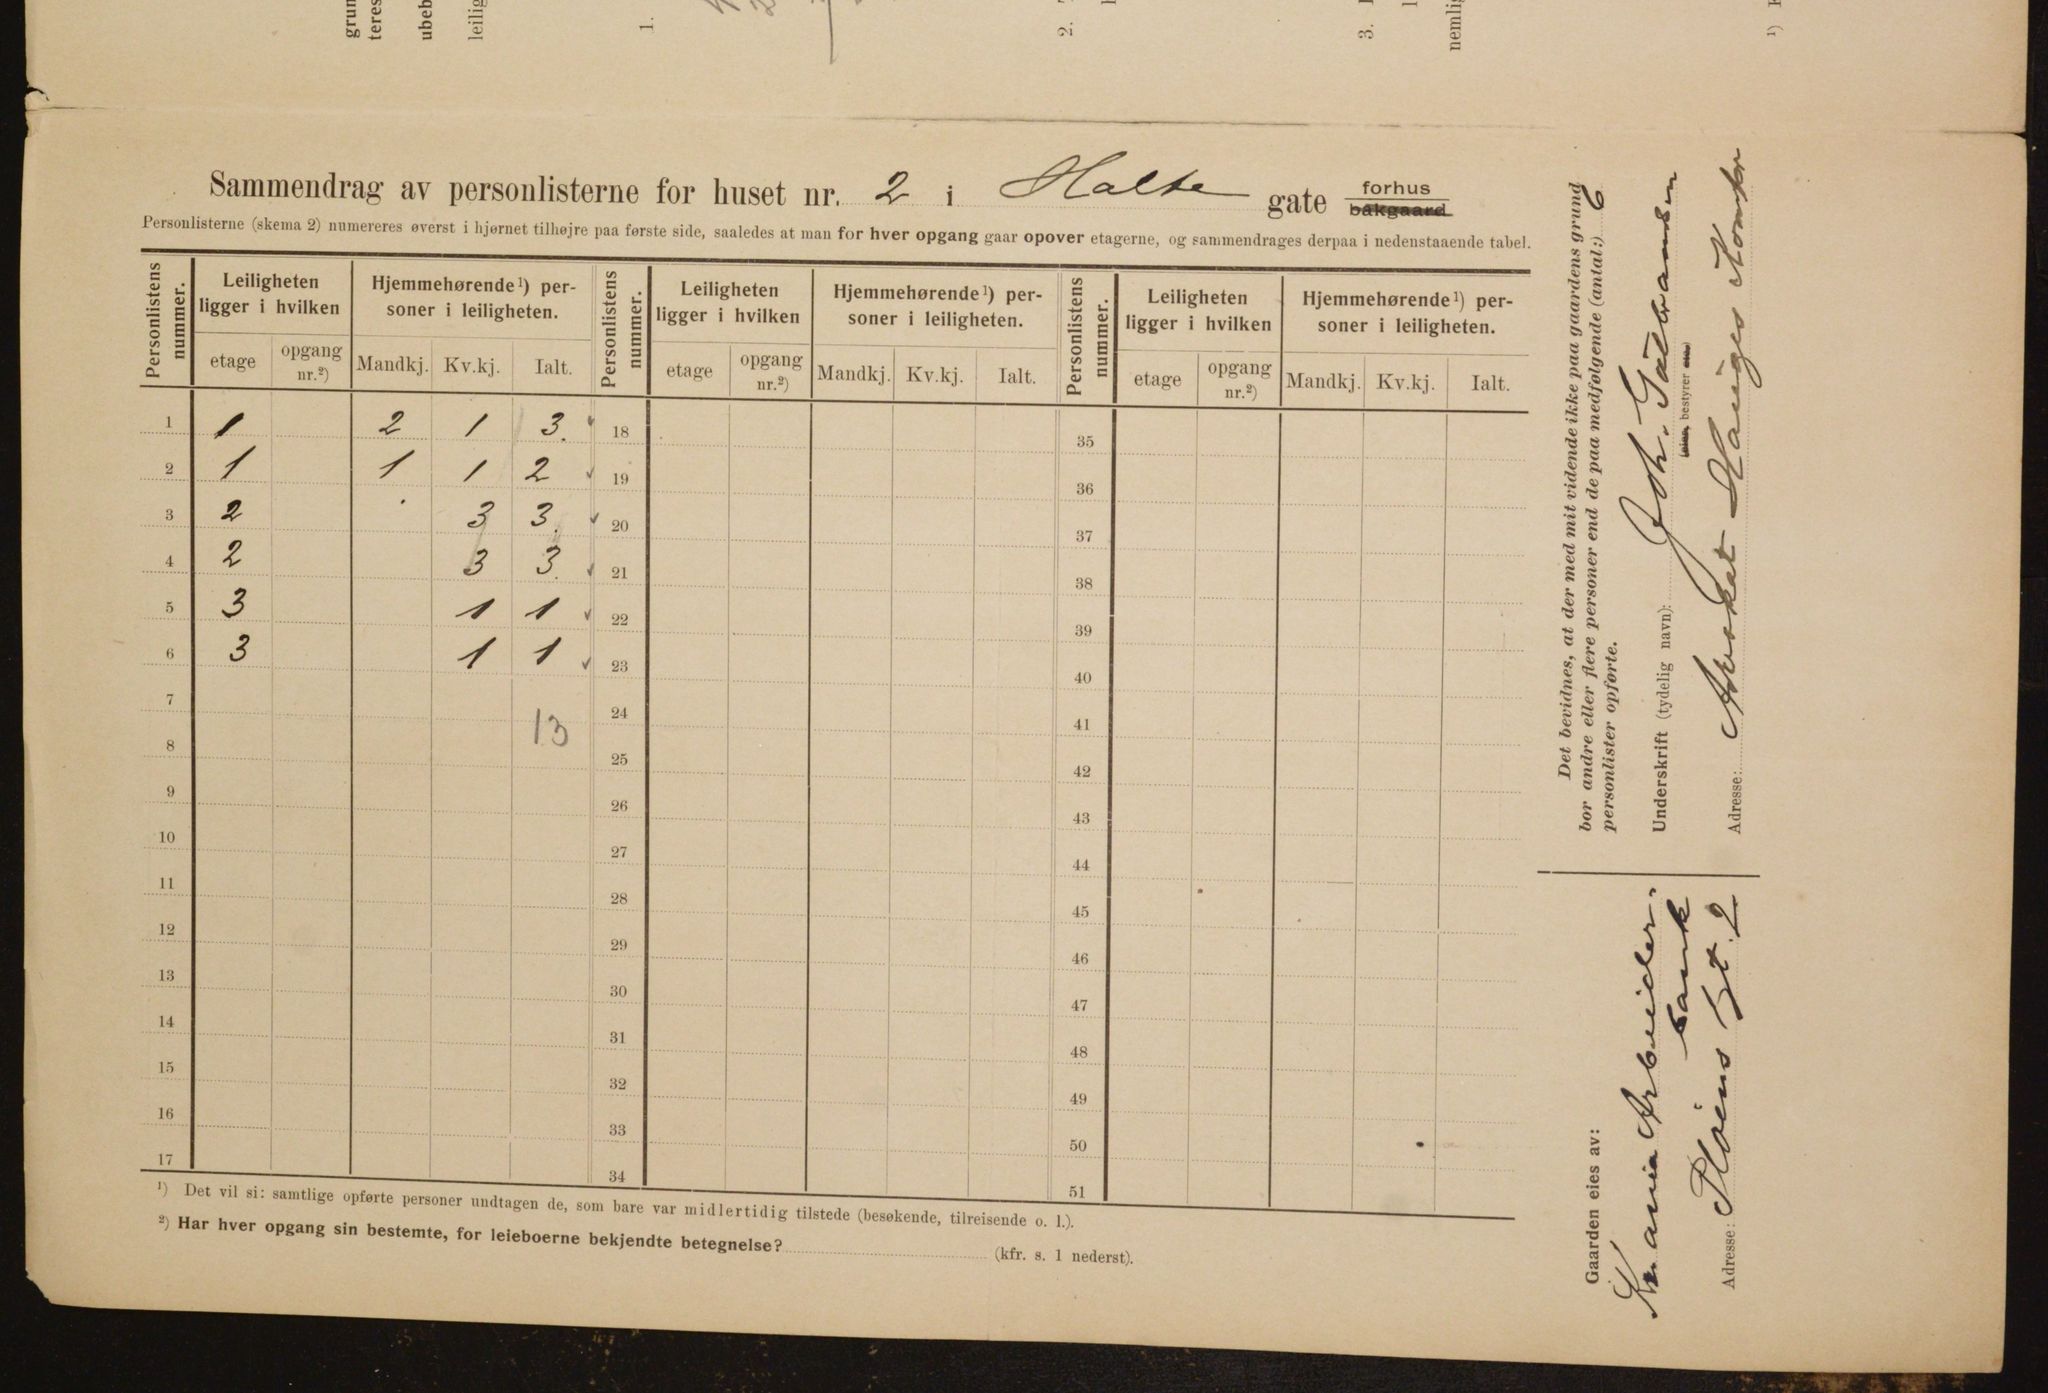 grun
teres
ubeb
leilig
1.
2.
3.
nemlig
¹)
Sammendrag av personlisterne for huset nr. 2 i Halte gate forhus
bakgaard
Personlisterne (skema 2) numereres øverst i hjørnet tilhøjre paa første side, saaledes at man for hver opgang gaar opover etagerne, og sammendrages derpaa i nedenstaaende tabel.
Personlistens nummer. Leiligheten ligger i hvilken Hjemmehørende ¹) personer i leiligheten. Personlistens nummer. Leiligheten ligger i hvilken Hjemmehørende ¹) personer i leiligheten. Personlistens nummer. Leiligheten ligger i hvilken Hjemmehørende ¹) personer i leiligheten.
etage opgang nr.²) Mandkj. Kv.kj. Ialt. etage opgang nr.²) Mandkj. Kv.kj. Ialt. etage opgang nr.²) Mandkj. Kv.kj. Ialt.
1 1 2 1 3. 18 35
2 1 1 1 2 19 36
3 2 3 3. 20 37
4 2 3 3. 21 38
5 3 1 1 22 39
6 3 1 1 23 40
7 24 41
13
8 25 42
9 26 43
10 27 44
11 28 45
12 29 46
13 30 47
14 31 48
15 32 49
16 33 50
17 34 51
¹) Det vil si: samtlige opførte personer undtagen de, som bare var midlertidig tilstede (besøkende, tilreisende o. l.).
²) Har hver opgang sin bestemte, for leieboerne bekjendte betegnelse? (kfr. s. 1 nederst).
Det bevidnes, at der med mit vidende ikke paa gaardens grund
bor andre eller flere personer end de paa medfølgende (antal:) 6
personlister opførte.
Underskrift (tydelig navn): Joh.
bestyrer
Adresse: Advokat Hauges Kontor
Gaarden eies av:
Kr.ania Arbeider-
bank
Adresse: Pløens Gt. 2